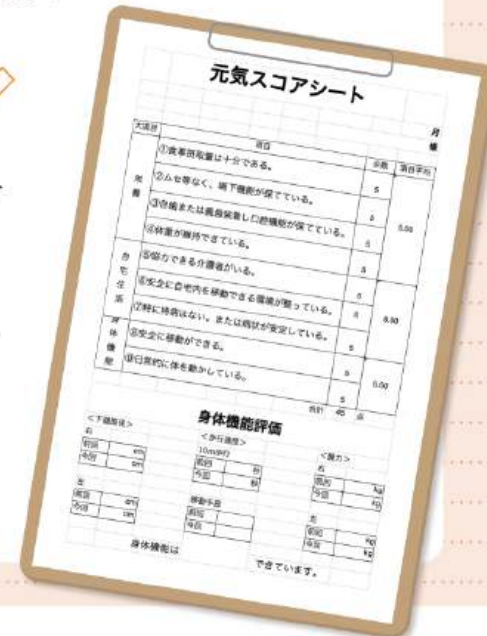 元気スコアシート
月
様
大項目 項目 点数 項目平均
栄養
①食事摂取量は十分である。 5
②ムセ等なく、嚥下機能が保てている。 5
③自歯または義歯装着し口腔機能が保てている。 5
④体重が維持できている。 5
5.00
自宅生活
⑤協力できる介護者がいる。 5
⑥安全に自宅内を移動できる環境が整っている。 5
⑦特に持病はない。または病状が安定している。 5
5.00
身体機能
⑧安全に移動ができる。 5
⑨日常的に体を動かしている。 5
5.00
合計 45 点
身体機能評価
<下腿周径>
右
前回 cm
今回 cm
左
前回 cm
今回 cm
<歩行速度>
10m歩行
前回 秒
今回 秒
移動手段
前回
今回
<握力>
右
前回 kg
今回 kg
左
前回 kg
今回 kg
身体機能は できています。